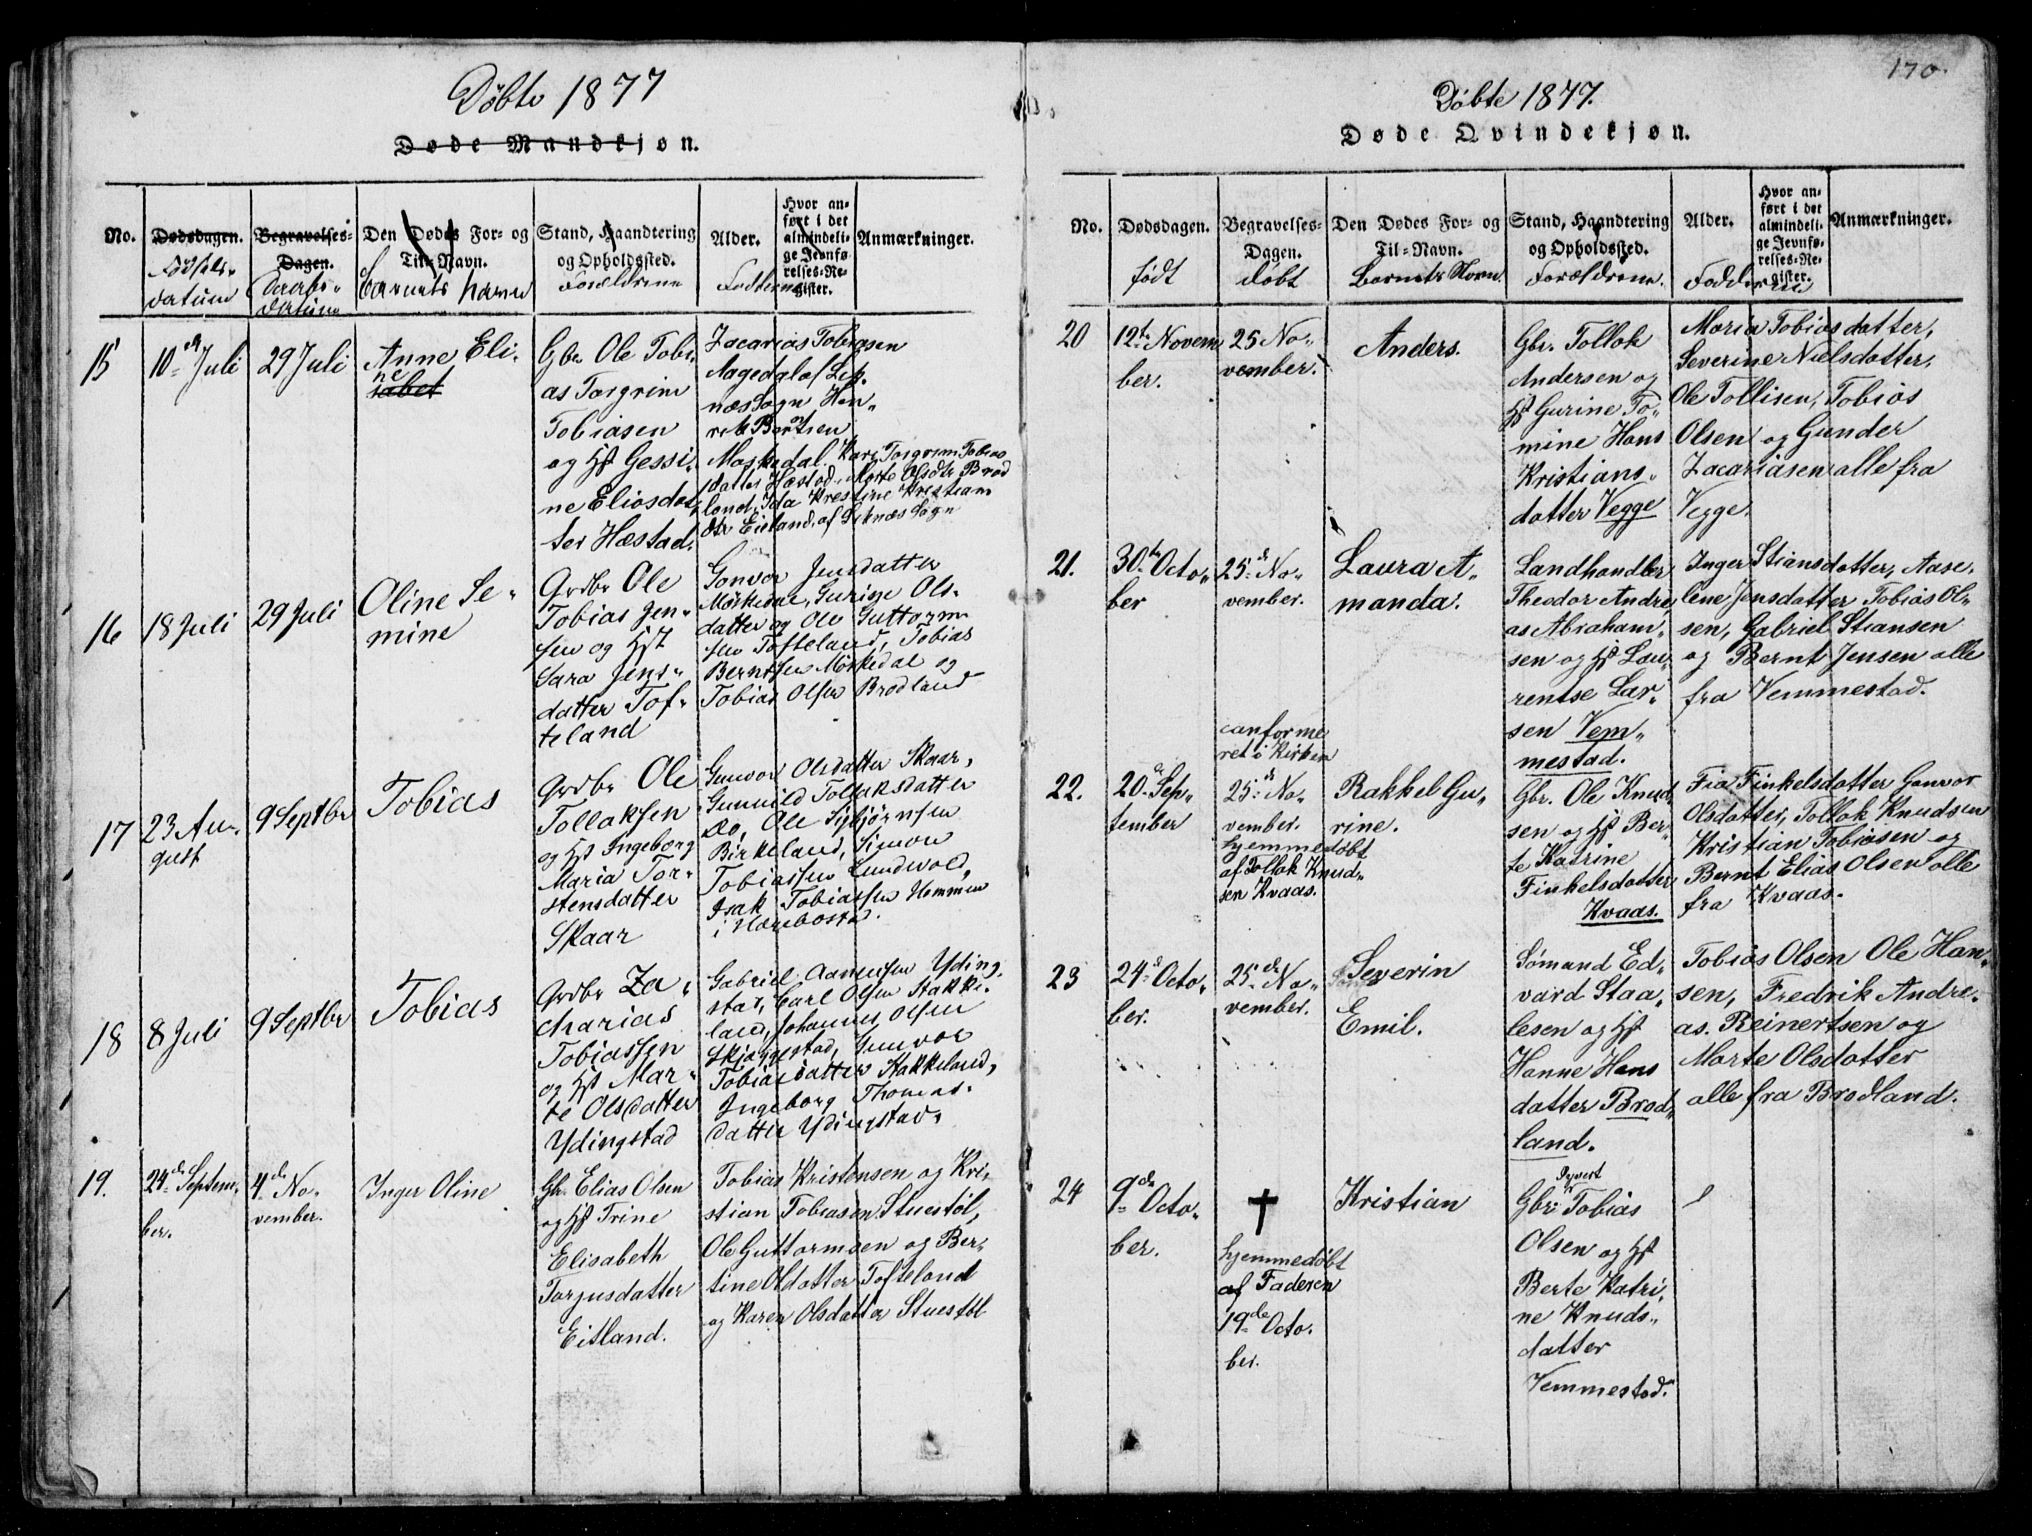 Døbte 1877
Døde Mandkjøn.
No.
Dødsdagen.
Fødsels-
datum
Begravelses-
Dagen.
Daabs-
datum
Den Dødes For- og
Til-Navn.
Barnets navn
Stand, Haandtering
og Opholdssted.
Forældrene
Alder.
Fadderne
Hvor an-
ført i det
almindeli-
ge Jevnfø-
relses-Re-
gister.
Anmærkninger.
15
10de Juli
29 Juli
Anne Eli-
ne
sabet
Gbr. Ole Tobi-
as Torgrim
Tobiasen
og Hst Gessi-
ne Eliasdat-
ter Hæstad.
Zacarias Tobiasen
Aagedal af Lik-
næs Sogn Hen-
rik Berntsen
Moskedal. Kari Torgrim Tobias
datter Hæstad, Marte Olsdtr Brød
land, Ida Krestine Kristians
dtr Eitland, af Liknæs Sogn
16
18 Juli
29 Juli
Oline Se-
mine
Grdbr Ole
Tobias Jen-
sen og Hst
Sara Jens-
datter Tof-
teland
Gonvor Jensdatter
Møskedal, Gurine Ols-
datter og Ole Guttorm-
sen Tofteland, Tobias
Berntsen Møskedal og
Tobias Olsen Brødland
17
23 Au-
gust
9 Septbr
Tobias
Grdbr Ole
Tollaksen
og Hst Ingeborg
Maria Tor-
stensdatter
Skaar
Gunvor Olsdatter Skaar,
Gunuild Tollaksdatter
do, Ole Sibjørnsen
Birkeland, Simon
Tobiassen Lundvold,
Isak Tobiassen Hommen
i Hærebostad.
18
8 Juli
9 Septbr
Tobias
Grdbr Za-
charias
Tobiassen
og Hst Mar-
te Olsdatter
Ydingstad
Gabriel Aanensen Yding-
stad, Carl Olsen Stakke-
land, Johannes Olsen
Skjæggestad, Gunvor
Tobiasdatter Stakkeland,
Ingeborg Thomas-
datter Ydingstad.
19.
24de Septem-
ber.
4de No-
vember.
Inger Oline
Gbr. Elias Olsen
og Hst Trine
Elisabeth
Torjusdatter
Eitland.
Tobias Kristensen og Kri-
stian Tobiasen Stuestøl,
Ole Guttormsen og Ber-
tine Olsdatter Tofteland
og Karen Olsdatter Stuestøl
170.
Døbte 1877.
Døde Qvindekjøn.
No.
Dødsdagen.
født
Begravelses-
Dagen.
døbt
Den Dødes For- og
Til-Navn.
Barnets Navn.
Stand, Haandtering
og Opholdssted.
Forældrene.
Alder.
Fadderne
Hvor an-
ført i det
almindeli-
ge Jevnfø-
relses-Re-
gister.
Anmærkninger.
20
12te Novem
ber.
25 No-
vember.
Anders.
Gbr. Tollak
Andersen og
Hst Gurine To-
mine Hans
Kristians-
datter Vegge
Maria Tobiasdatter,
Severine Nielsdatter,
Ole Tollisen, Tobias
Olsen og Gunder
Zacariasen alle fra
Vegge.
21.
30te Octo-
ber
25de No-
vember.
Laura A-
manda.
Landhandler
Theodor Andre
as Abraham-
sen og Hst Lau-
rentse Lar-
sen Vem-
mestad.
Inger Stiansdatter, Aase-
line Jensdatter Tobias Ol-
sen, Gabriel Stiansen
og Bernt Jensen alle
fra Vemmestad.
22.
20de Sep-
tember
canforme
ret i Kirken
25de No-
vember.
hjemmedøbt
af Tollak Knud-
sen Kvaas.
Rakkel Gu-
rine.
Gbr. Ole Knud-
sen og Hst Ber-
te Katrine
Finkelsdatter
Kvaas.
Fia Finkelsdatter Gonvor
Olsdatter, Tollak Knudsen
Kristian Tobiasen og
Bernt Elias Olsen alle
fra Kvaas.
23
24de Octo-
ber.
25de No-
vember.
Severin
Emil.
Sømand Ed-
vard Staa-
lesen og Hst
Hanne Hans
datter Brød-
land.
Tobias Olsen Ole Han-
sen, Fredrik Andre-
as. Reinertsen og
Marte Olsdatter
alle fra Brødland.
24
9de Octo-
ber.
†
hjemmedøbt
af Faderen
19de Octo-
ber.
Kristian
Syvert
Gbr. Tobias
Olsen og Hst
Berte Katri-
ne Knuds-
datter
Vemmestad.